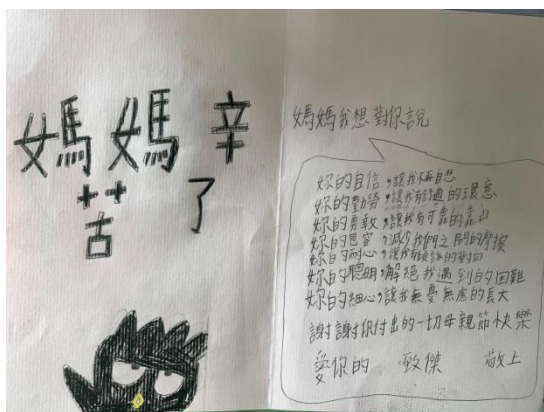 媽媽辛
苦了
媽媽我想對你說
妳的自信,讓我不再自悲
妳的勤勞,讓我有舒適的環意
妳的勇敢,讓我有可靠的靠山
妳的包容,減少我們之間的摩擦
妳的耐心,讓我有的對向
妳的聰明,解絕我遇到的困難
妳的細心,讓我無憂無慮的長大
謝謝你付出的一切母親節快樂
愛你的 致傑 敬上